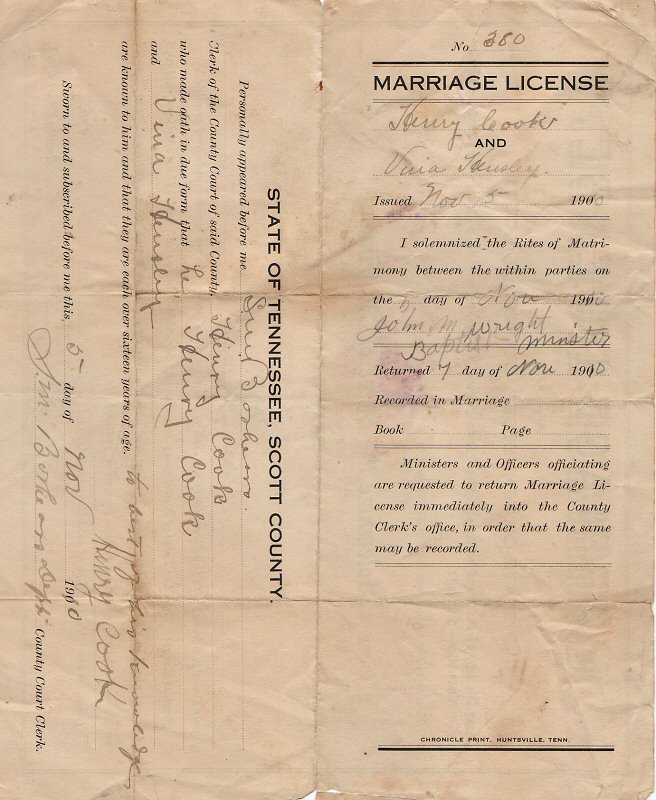 No 380
MARRIAGE LICENSE
Henry Cook
AND
Vina Hensley.
Issued Nov 5 1910
I solemnized the Rites of Matri-
mony between the within parties on
the day of Nov 1910
John M, Wright
Baptist Minster
Returned 7 day of Nov 1910
Recorded in Marriage
Book Page
Ministers and Officers officiating
are requested to return Marriage Li-
cense immediately into the County
Clerk's office, in order that the same
may be recorded.
CHRONICLE PRINT, HUNTSVILLE, TENN.
STATE OF TENNESSEE, SCOTT COUNTY.
Personally appeared before me
Clerk of the County Court of said County, Henry Cook
who made oath in due form that he Henry Cook
and Vina Hensley
are known to him and that they are each over sixteen years of age. to his knowledge
Henry Cook
Sworn to and subscribed before me this 5 day of Nov 1910
County Court Clerk.